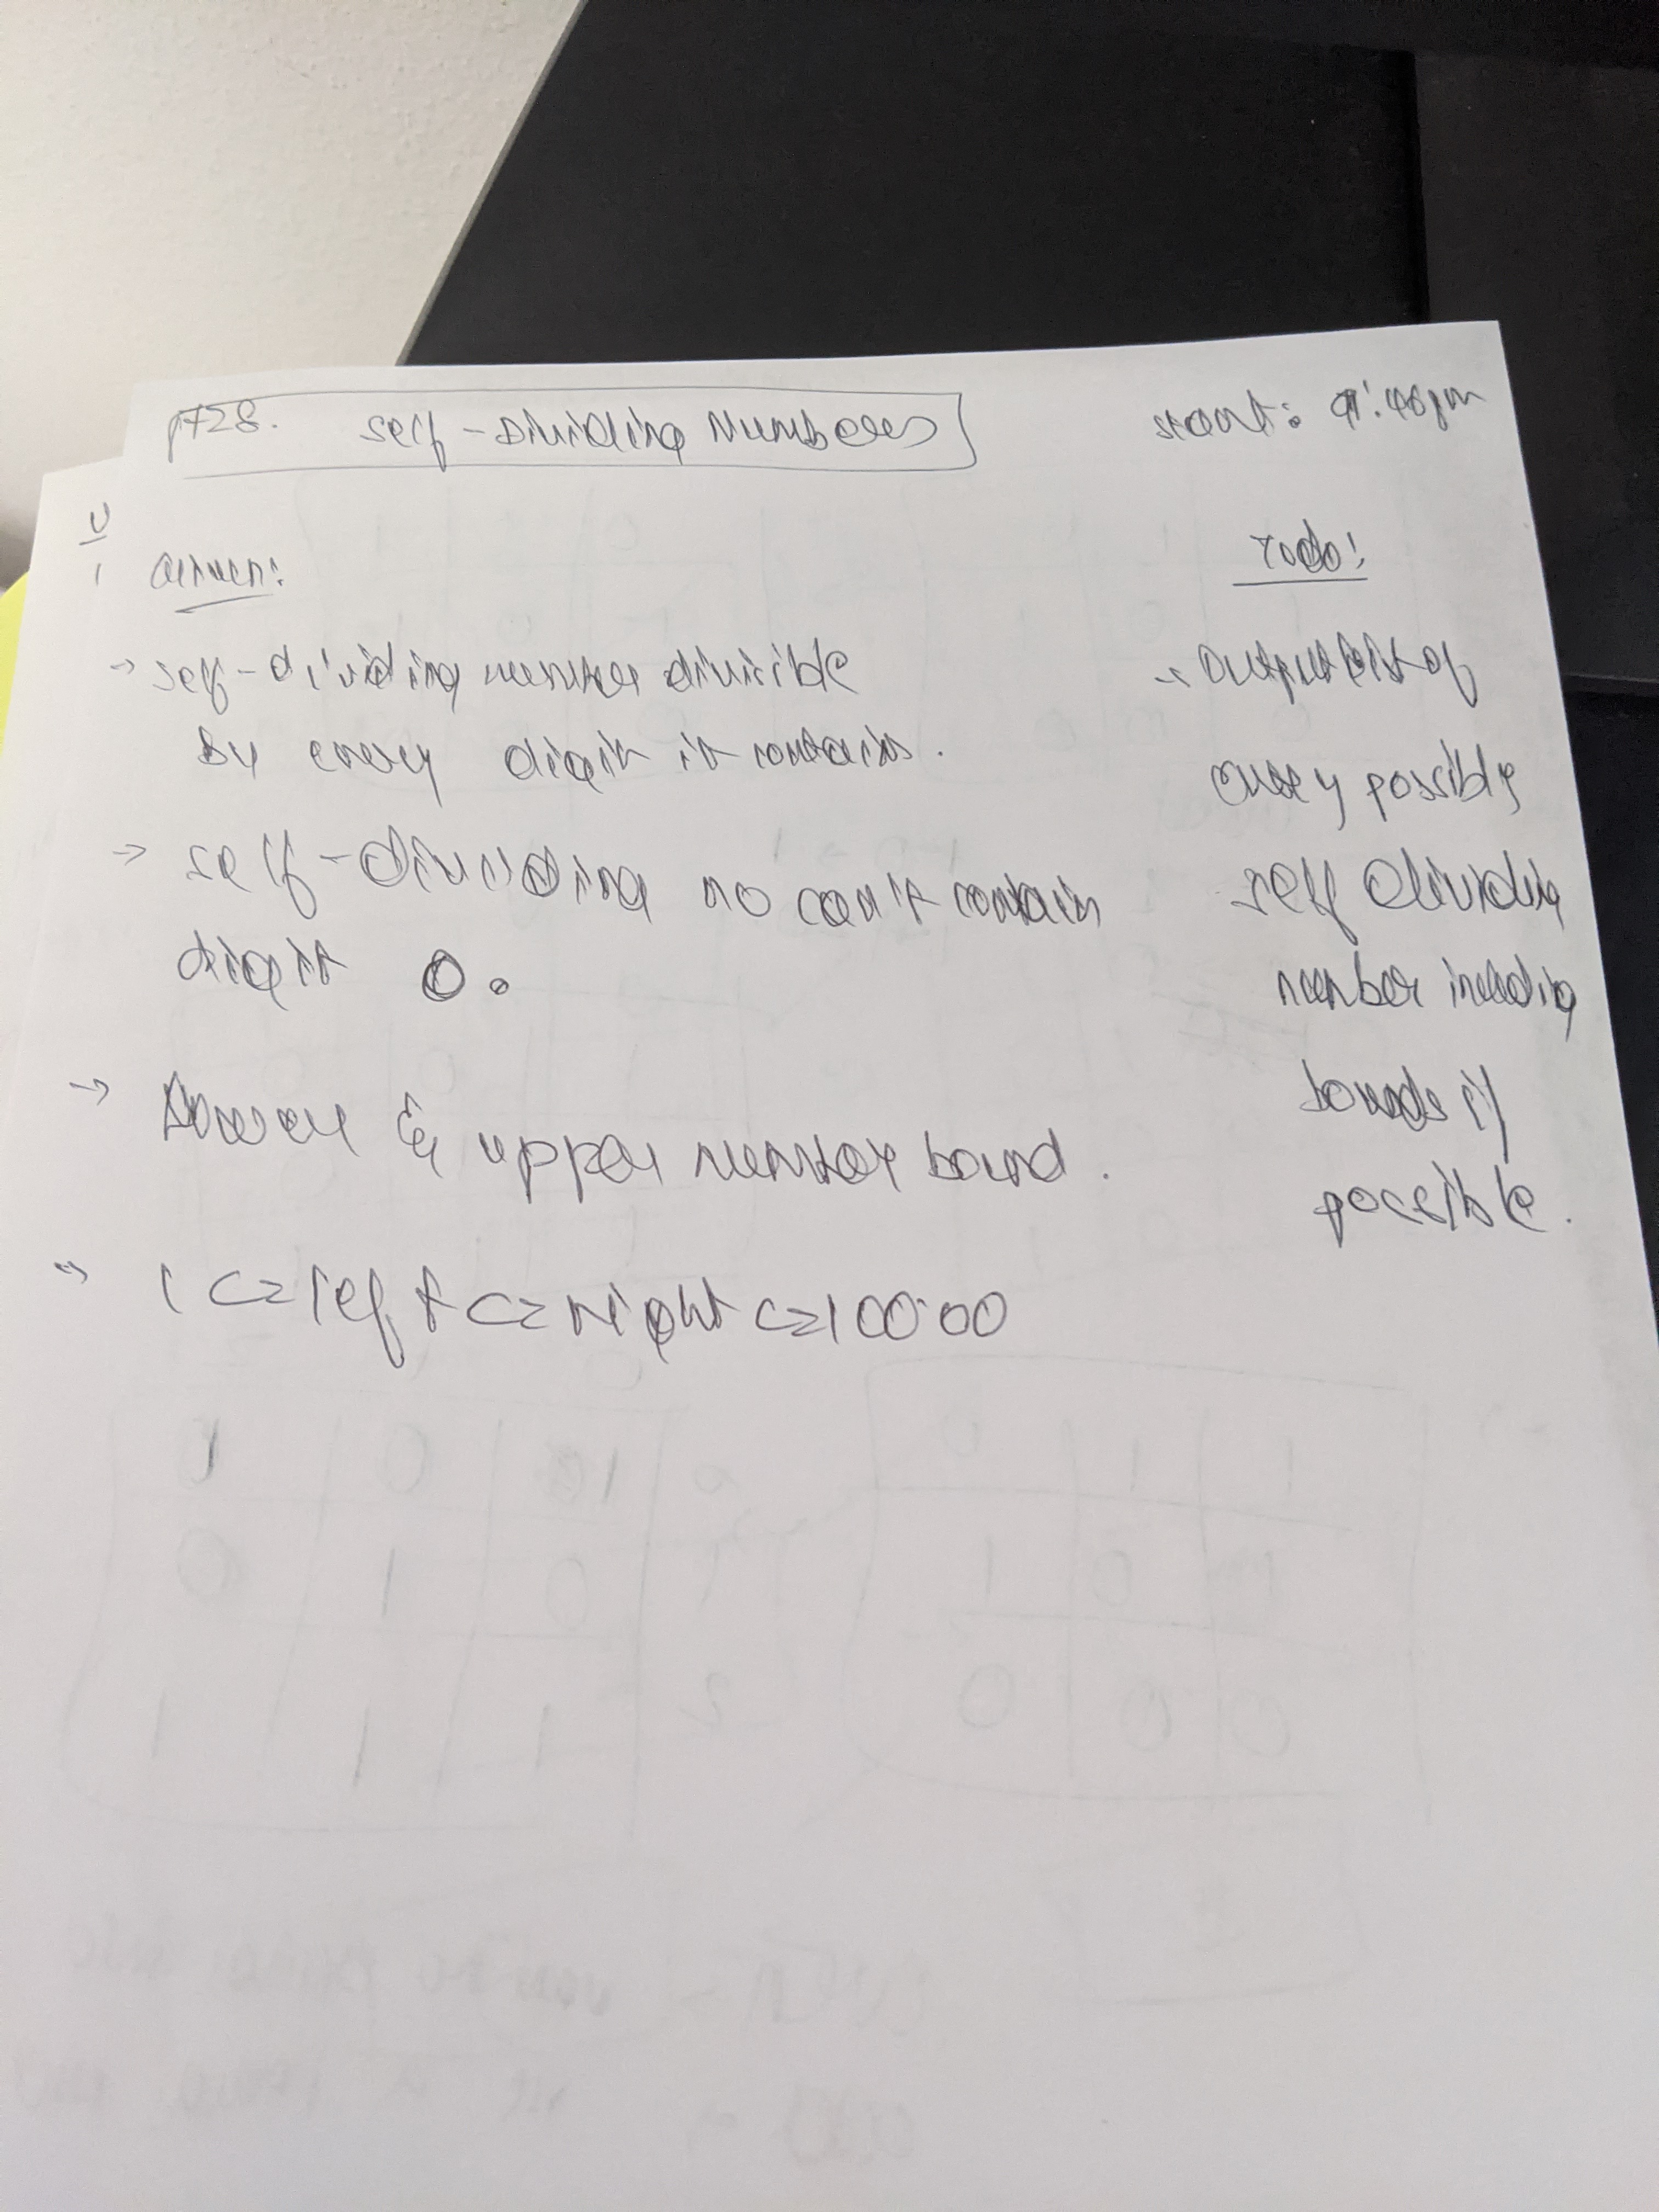 p728. Self-Dividing Numbers
start: 9:48pm
U
Given:
→ self-dividing number divisible
By every digit it contains.
→ self-dividing no can't contain
digit 0.
→ Lower & upper number bound.
→ 1 <= left <= right <= 10000
Todo:
→ Output list of
every possible
self dividing
number including
bounds if
possible.